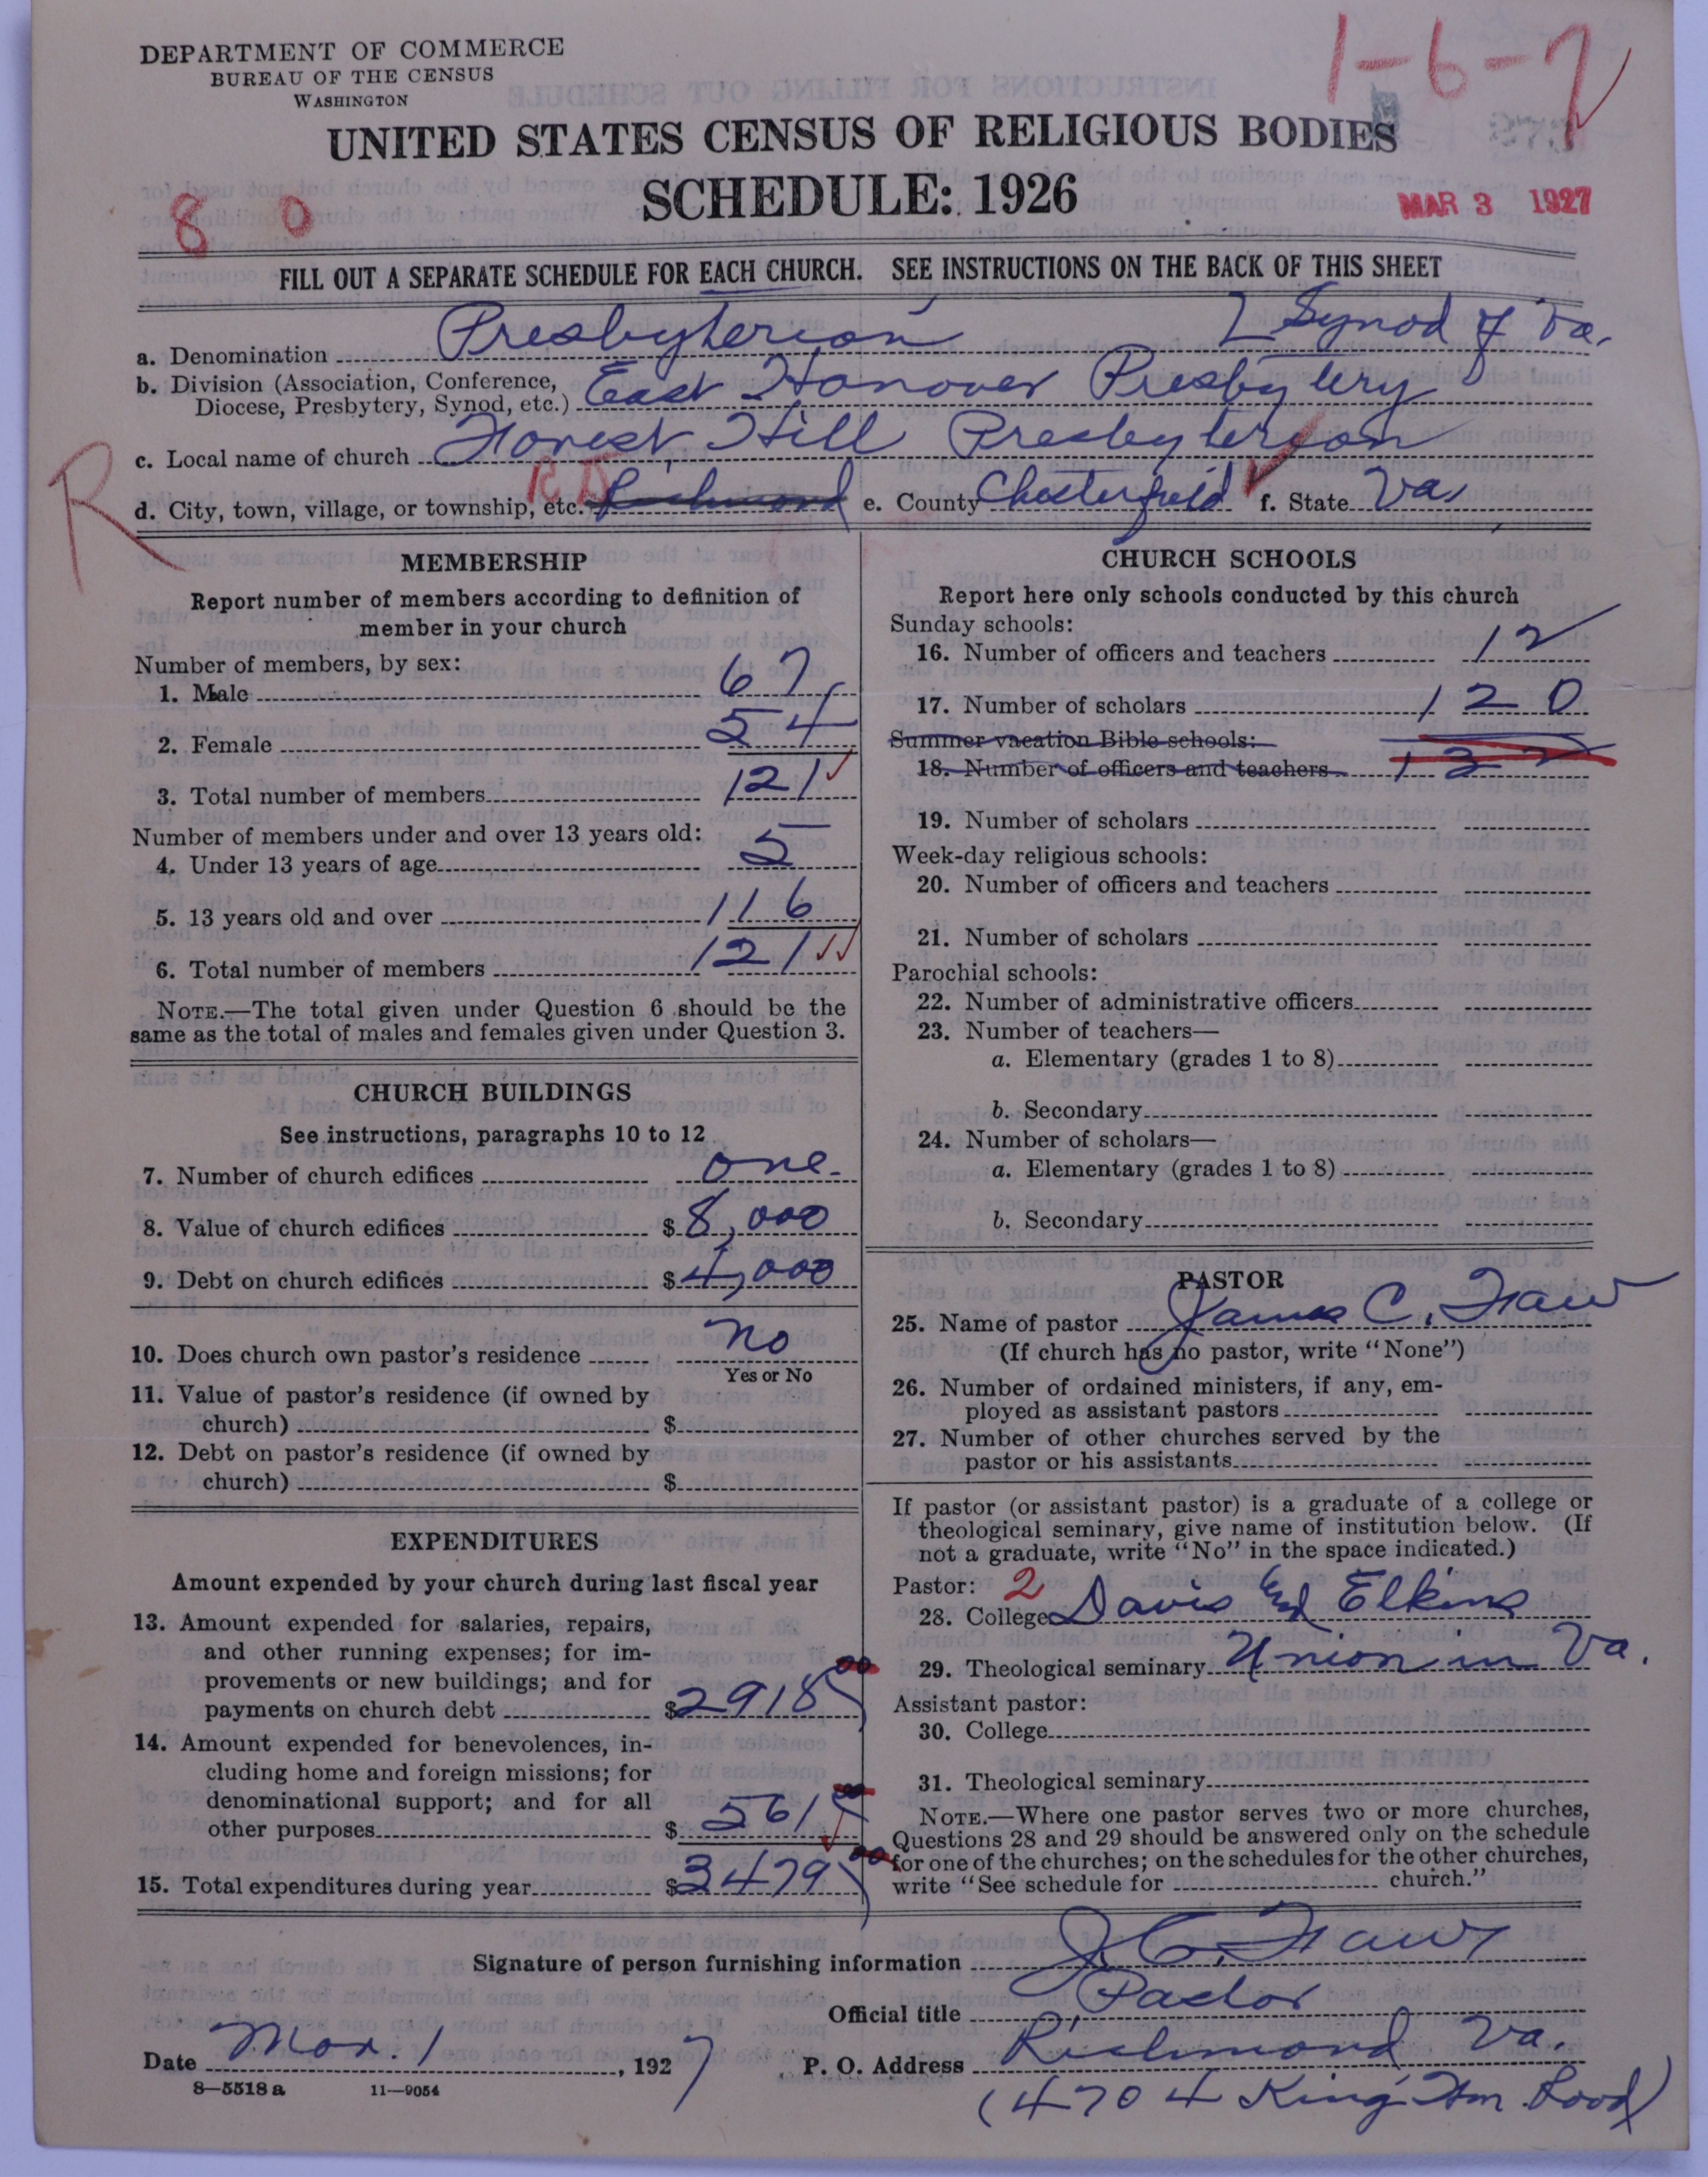 DEPARTMENT OF COMMERCE
BUREAU OF THE CENSUS
WASHINGTON
1-6-2
UNITED STATES CENSUS OF RELIGIOUS BODIES
SCHEDULE: 1926
8 0
MAR 3 1927
FILL OUT A SEPARATE SCHEDULE FOR EACH CHURCH. SEE INSTRUCTIONS ON THE BACK OF THIS SHEET
a. Denomination Presbyterian Synod of Va.
b. Division (Association, Conference, Diocese, Presbytery, Synod, etc.) East Hanover Presbytery
c. Local name of church Forest Hill Presbyterian
R
d. City, town, village, or township, etc. Richmond e. County Chesterfield f. State Va.
MEMBERSHIP
Report number of members according to definition of
member in your church
Number of members, by sex:
1. Male 67
2. Female 54
3. Total number of members 121
Number of members under and over 13 years old:
4. Under 13 years of age 5
5. 13 years old and over 116
6. Total number of members 121
NOTE.—The total given under Question 6 should be the
same as the total of males and females given under Question 3.
CHURCH BUILDINGS
See instructions, paragraphs 10 to 12
7. Number of church edifices one
8. Value of church edifices $ 8,000
9. Debt on church edifices $ 4,000
10. Does church own pastor's residence no
Yes or No
11. Value of pastor's residence (if owned by
church) $
12. Debt on pastor's residence (if owned by
church) $
EXPENDITURES
Amount expended by your church during last fiscal year
13. Amount expended for salaries, repairs,
and other running expenses; for im-
provements or new buildings; and for
payments on church debt $ 2918 00
14. Amount expended for benevolences, in-
cluding home and foreign missions; for
denominational support; and for all
other purposes $ 561 00
15. Total expenditures during year $ 3479 00
CHURCH SCHOOLS
Report here only schools conducted by this church
Sunday schools:
16. Number of officers and teachers 12
17. Number of scholars 120
Summer vacation Bible schools:
18. Number of officers and teachers 132
19. Number of scholars
Week-day religious schools:
20. Number of officers and teachers
21. Number of scholars
Parochial schools:
22. Number of administrative officers
23. Number of teachers—
a. Elementary (grades 1 to 8)
b. Secondary
24. Number of scholars—
a. Elementary (grades 1 to 8)
b. Secondary
PASTOR
25. Name of pastor James C. Faw
(If church has no pastor, write "None")
26. Number of ordained ministers, if any, em-
ployed as assistant pastors
27. Number of other churches served by the
pastor or his assistants
If pastor (or assistant pastor) is a graduate of a college or
theological seminary, give name of institution below. (If
not a graduate, write "No" in the space indicated.)
Pastor: 2
28. College Davis and Elkins
29. Theological seminary Union in Va.
Assistant pastor:
30. College
31. Theological seminary
NOTE.—Where one pastor serves two or more churches,
Questions 28 and 29 should be answered only on the schedule
for one of the churches; on the schedules for the other churches,
write "See schedule for church."
Signature of person furnishing information J. C. Faw
Official title Pastor
Date Mar. 1, 1927 P. O. Address Richmond Va.
8—5518 a 11—9054
(4704 King Wm Road)